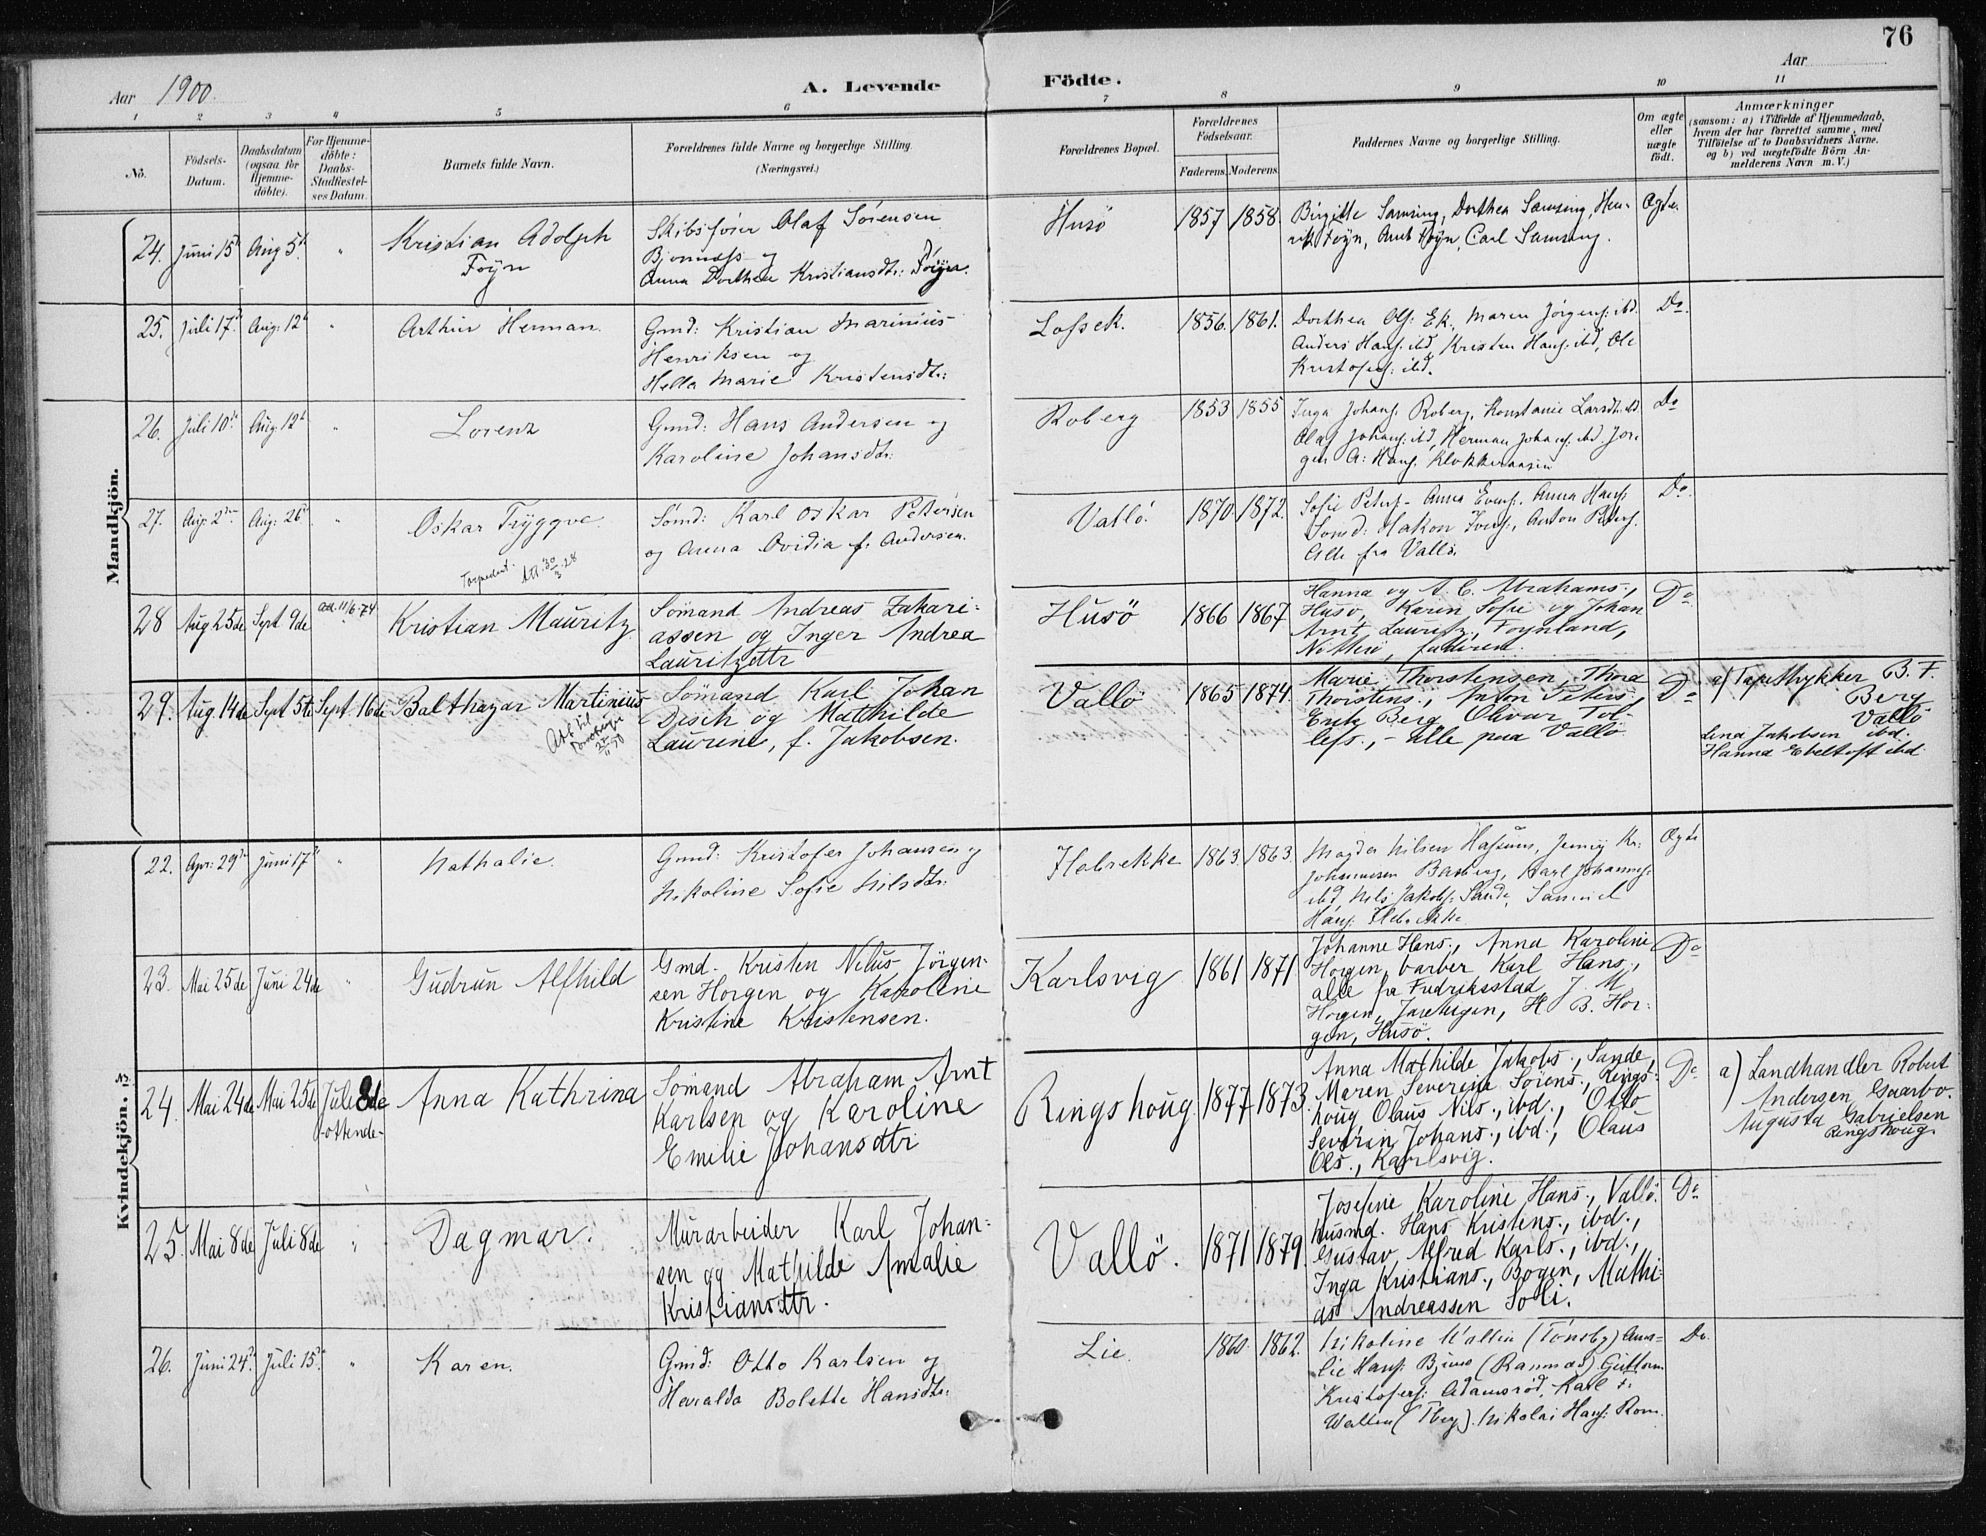 76
Aar 1900.
A. Levende
Födte.
Aar
1 2 3 4 5 6 7 8 9 10 11
No.
Födsels-Datum.
Daabsdatum (ogsaa for Hjemmedöbte).
For Hjemmedöbte: Daabs-Stadfæstelses Datum.
Barnets fulde Navn.
Forældrenes fulde Navne og borgerlige Stilling.
(Næringsvei.)
Forældrenes Bopæl.
Forældrenes Födselsaar.
Faderens. Moderens.
Faddernes Navne og borgerlige Stilling.
Om ægte eller uægte födt.
Anmærkninger
(saasom: a) i Tilfælde af Hjemmedaab,
hvem der har forrettet samme, med
Tilföielse af to Daabsvidners Navne,
og b) ved uægtefödte Börn Anmelderens Navn m. V.)
Mandkjön.
24. Juni 15de Aug 5te " Kristian Adolph Föyn
Skibsförer Olaf Sörensen
Bjonness og
Anna Dorthea Kristiansdtr: Föyn.
Husö 1857 1858.
Birgitte Samsing, Dorthea Samsing, Hen-
rik Föyn, Anet Föyn, Carl Samsing.
Ægte.
25. Juli 17de Aug: 12te " Arthur Herman.
Gmd: Kristian Marinius
Henriksen og
Hella Marie Kristensdtr:
Lofsek. 1856. 1861.
Dorthea Ols: Ek, Maren Jörgens: ibd.
Anders Hans: ibd, Kristen Hans: ibd, Ole
Kristofers: ibd.
Do.
26. Juli 10de Aug. 12te " Lorenz
Gmd: Hans Andersen og
Karoline Johansdtr:
Roberg 1853 1855
Inga Johans: Roberg, Konstanse Larsdtr ibd.
Olaf Johans: ibd, Herman Johans: ibd. Jör-
gen A: Hans: Klokkeraasen
Do
27. Aug: 2den Aug: 26de " Oskar Tryggve.
Sömd: Karl Oskar Petersen
og Anna Ovidia f. Andersen.
Vallö. 1870. 1872.
Sofie Peters- Anna Evens. Anna Hans
Sömd: Hakon Ivers., Anton Peters.
Alle fra Vallö.
Do.
Att. 30/3.28
28 Aug 25de Sept 9de Att. 11/6-74 Kristian Mauritz
Sömand Andreas Zakari-
assen og Inger Andrea
Lauritzdtr
Husö 1866 1867
Hanna og A. C. Abrahams.,
Husö, Karen Sofie og Johan
Arnt Lauritz., Föynland,
Nötterö, faderen.
Do
29. Aug 14de Sept 5te Sept 16de Balthazar Martinius
Sömand Karl Johan
Disch og Mathilde
Laurene, f. Jakobsen.
Vallö 1865 1874.
Marie Thorstensen, Thora
Thorstens., Anton Peters.,
Erik Berg, Olivar Tol-
lefs., - alle paa Vallö
Do
a) Tapettrykker B. F.
Berg
Vallö
Lina Jakobsen ibd.
Hanna Ebeltoft ibd
Kvindekjön.
22. Apr: 29de Juni 17de " Nathalie.
Gmd: Kristofer Johansen og
Nikoline Sofie Nilsdtr:
Ilebrekke 1863. 1863.
Magda Nilsen Hasum, Jenny Kr:
Johannesen Barberg, Karl Johannes:
ibd, Nils Jakobs: Sande, Samuel
Hans: Ilebrekke
Ægte
23. Mai 25de Juni 24de " Gudrun Alfhild
Gmd. Kristen Nilus Jörgen-
sen Horgen og Karoline
Kristine Kristensen.
Karlsvig 1861 1871
Johanne Hans., Anna Karoline
Horgen, barber Karl Hans.,
alle fra Fredriksstad, J. M.
Horgen, Jareteigen, H. B. Hor-
gen, Husö.
Do
24. Mai 24de Mai 25de Juli 8de -ottende- Anna Kathrina
Sömand Abraham Arnt
Karlsen og Karoline
Emilie Johansdtr
Ringshoug 1877 1873.
Anna Mathilde Jakobs., Sande,
Maren Severine Sörens., Rings-
houg Olaus Nils., ibd., Otto
Severin Johans., ibd., Olaus
Ols., Karlsvig.
Do
a) Landhandler Robert
Andersen Gaarbo.
Augusta Gabrielsen
Ringshoug.
25. Mai 8de Juli 8de " Dagmar.
Murarbeider Karl Johan-
sen og Mathilde Amalie
Kristiansdtr.
Vallö. 1871 1879.
Josefine Karoline Hans., Vallö.
Husmd. Hans Kristens., ibd.,
Gustav Alfred Karls., ibd.,
Inga Kristians., Bogen, Mathi-
as Andreassen Soli.
Do
26. Juni 24de Juli 15de " Karen.
Gmd: Otto Karlsen og
Haralda Bolette Hansdtr:
Lie. 1860. 1862.
Nikoline Wallin (Tönsbg) Ama-
lie Hans: Bjune (Ramnæs) Guttorm
Kristofers: Adamsröd, Karl
Wallin (Tbg). Nikolai Hans: Rom.
Do.